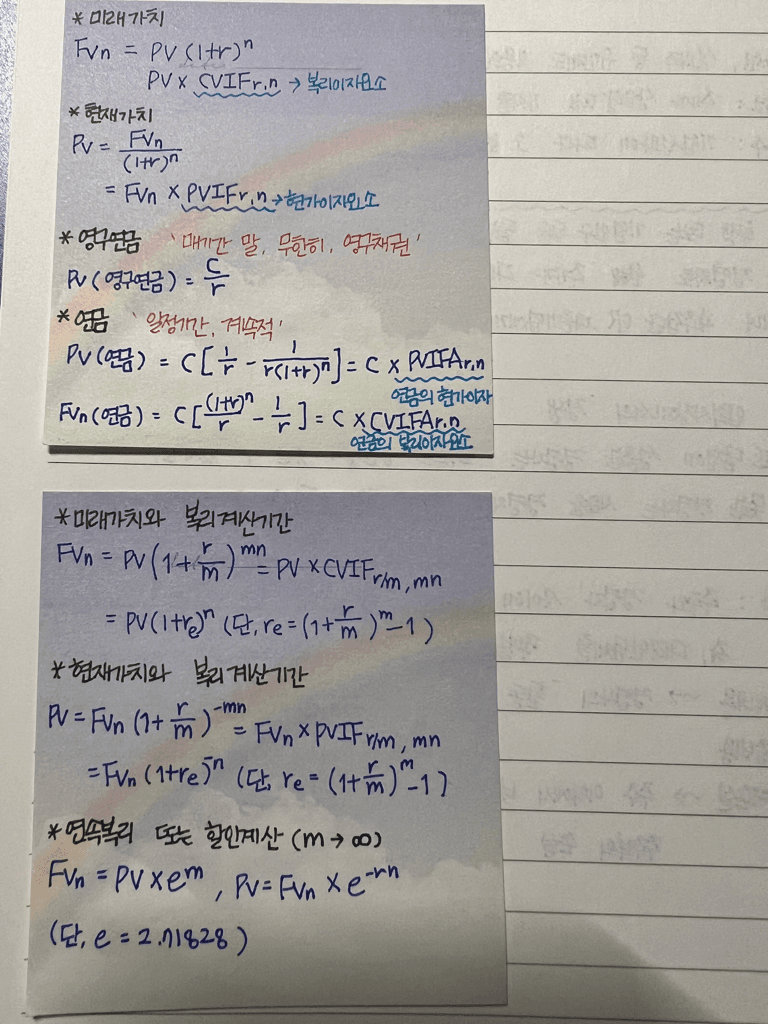 * 미래가치
FVn = PV (1+r)^n
PV × CVIFr,n → 복리이자요소
* 현재가치
PV = FVn/(1+r)^n
= FVn × PVIFr,n → 현가이자요소
* 영구연금 '매기간 말, 무한히, 영구채권'
PV (영구연금) = C/r
* 연금 '일정기간, 계속적'
PV (연금) = C [1/r - 1/r(1+r)^n] = C × PVIFAr,n
연금의 현가이자
FVn (연금) = C [(1+r)^n/r - 1/r] = C × CVIFAr,n
연금의 복리이자요소
* 미래가치와 복리계산기간
FVn = PV (1+r/m)^mn = PV × CVIFr/m, mn
= PV(1+re)^n (단, re = (1+r/m)^m -1)
* 현재가치와 복리계산기간
PV = FVn (1+r/m)^-mn = FVn × PVIFr/m, mn
= FVn (1+re)^-n (단, re = (1+r/m)^m -1)
* 연속복리 또는 할인계산 (m → ∞)
FVn = PV × e^rn, PV = FVn × e^-rn
(단, e = 2.71828)